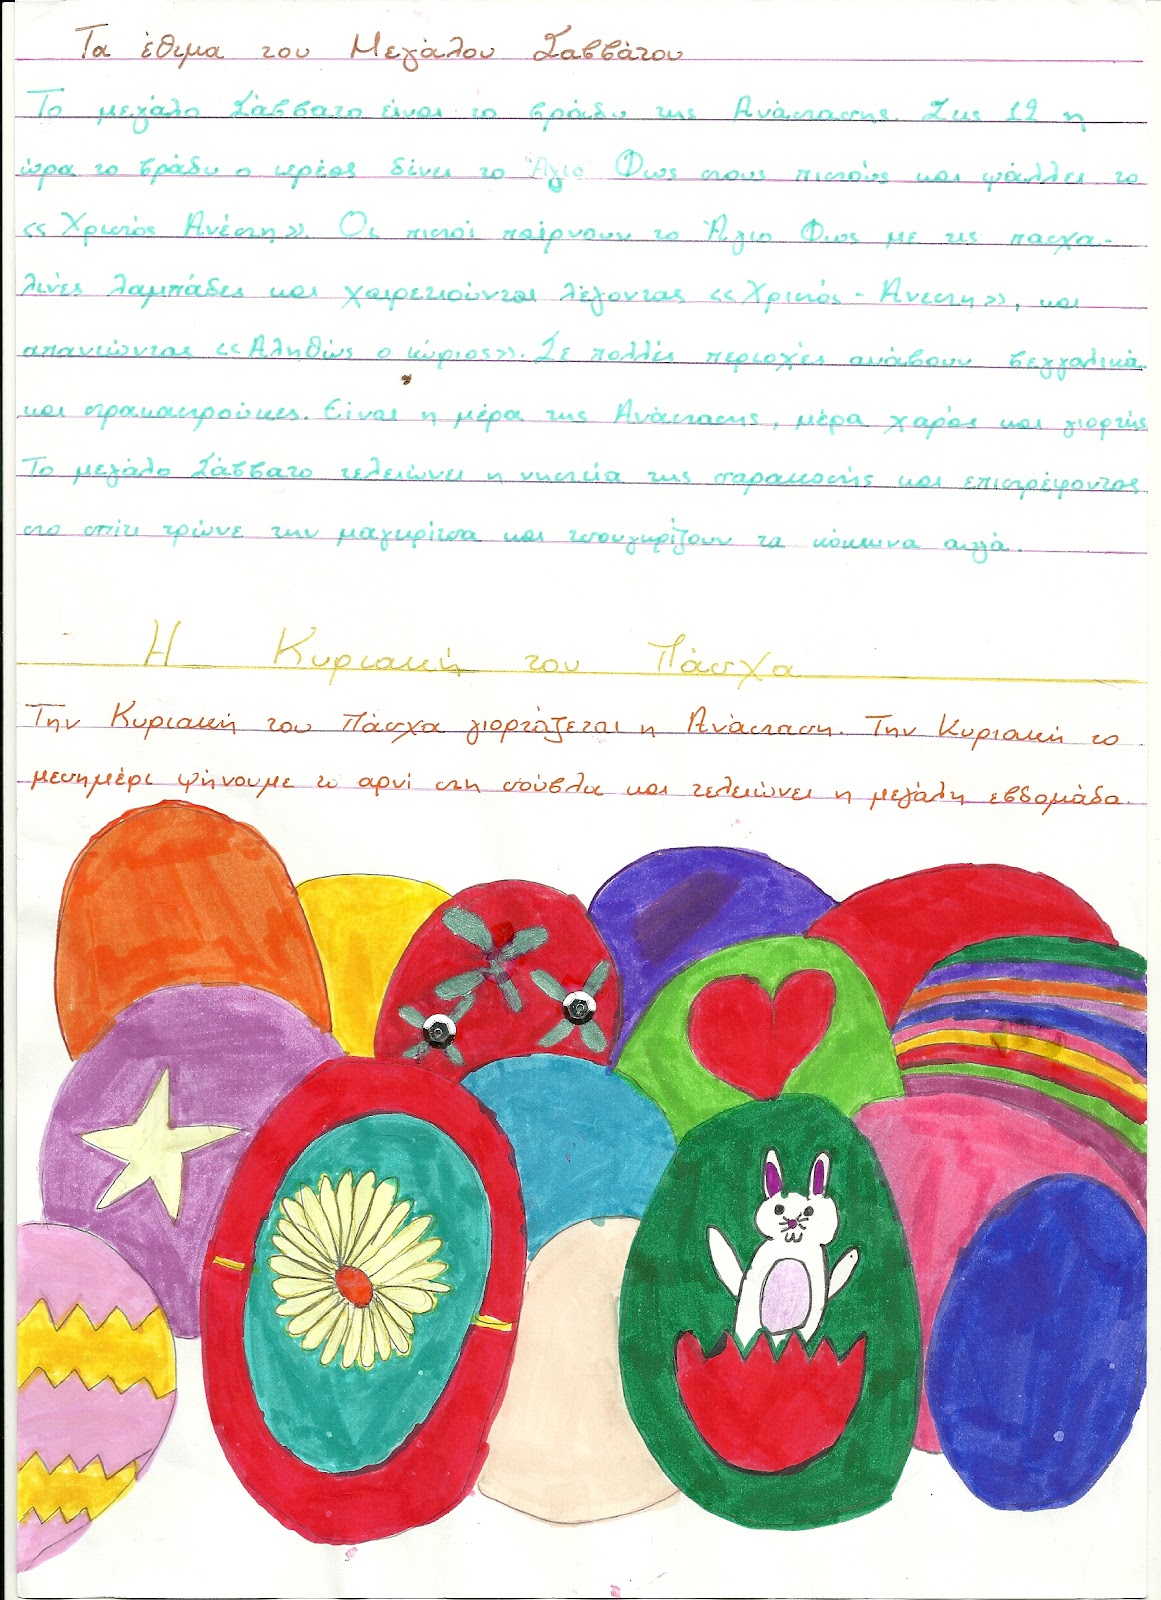 Τα έθιμα του Μεγάλου Σαββάτου
Το μεγάλο Σάββατο είναι το βράδυ της Ανάστασης. Στις 12 η
ώρα το βράδυ ο ιερέας δίνει το Άγιο Φως στους πιστούς και ψάλλει το
«Χριστός Ανέστη». Οι πιστοί παίρνουν το Άγιο Φως με τις πασχα-
λινές λαμπάδες και χαιρετιούνται λέγοντας «Χριστός - Ανεστη», και
απαντώντας «Αληθώς ο κύριος». Σε πολλές περιοχές ανάβουν βεγγαλικά
και στρακαστρούκες. Είναι η μέρα της Ανάστασης, μέρα χαράς και γιορτής
Το μεγάλο Σάββατο τελειώνει η νηστεία της σαρακοστής και επιστρέφοντας
στο σπίτι τρώνε την μαγειρίτσα και τσουγκρίζουν τα κόκκινα αυγά.
Η Κυριακή του Πάσχα
Την Κυριακή του Πάσχα γιορτάζεται η Ανάσταση. Την Κυριακή το
μεσημέρι ψήνουμε το αρνί στη σούβλα και τελειώνει η μεγάλη εβδομάδα.